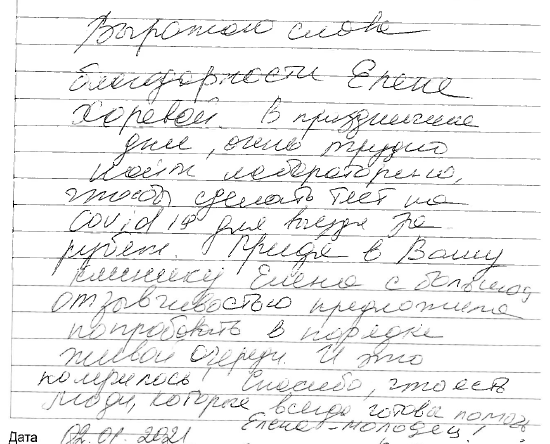 Выражаю слова
благодарности Елене
Харевой. В праздничные
дни, очень трудно
найти лабораторию,
чтобы сделать тест на
Covid 19 для выезда за
рубеж. Придя в Вашу
клинику Елена с большой
отзывчивостью предложила
попробовать в порядке
живой очереди. И это
получилось Спасибо, что есть
люди, которые всегда готовы помочь
Елена - молодец!
Дата 02.01.2021